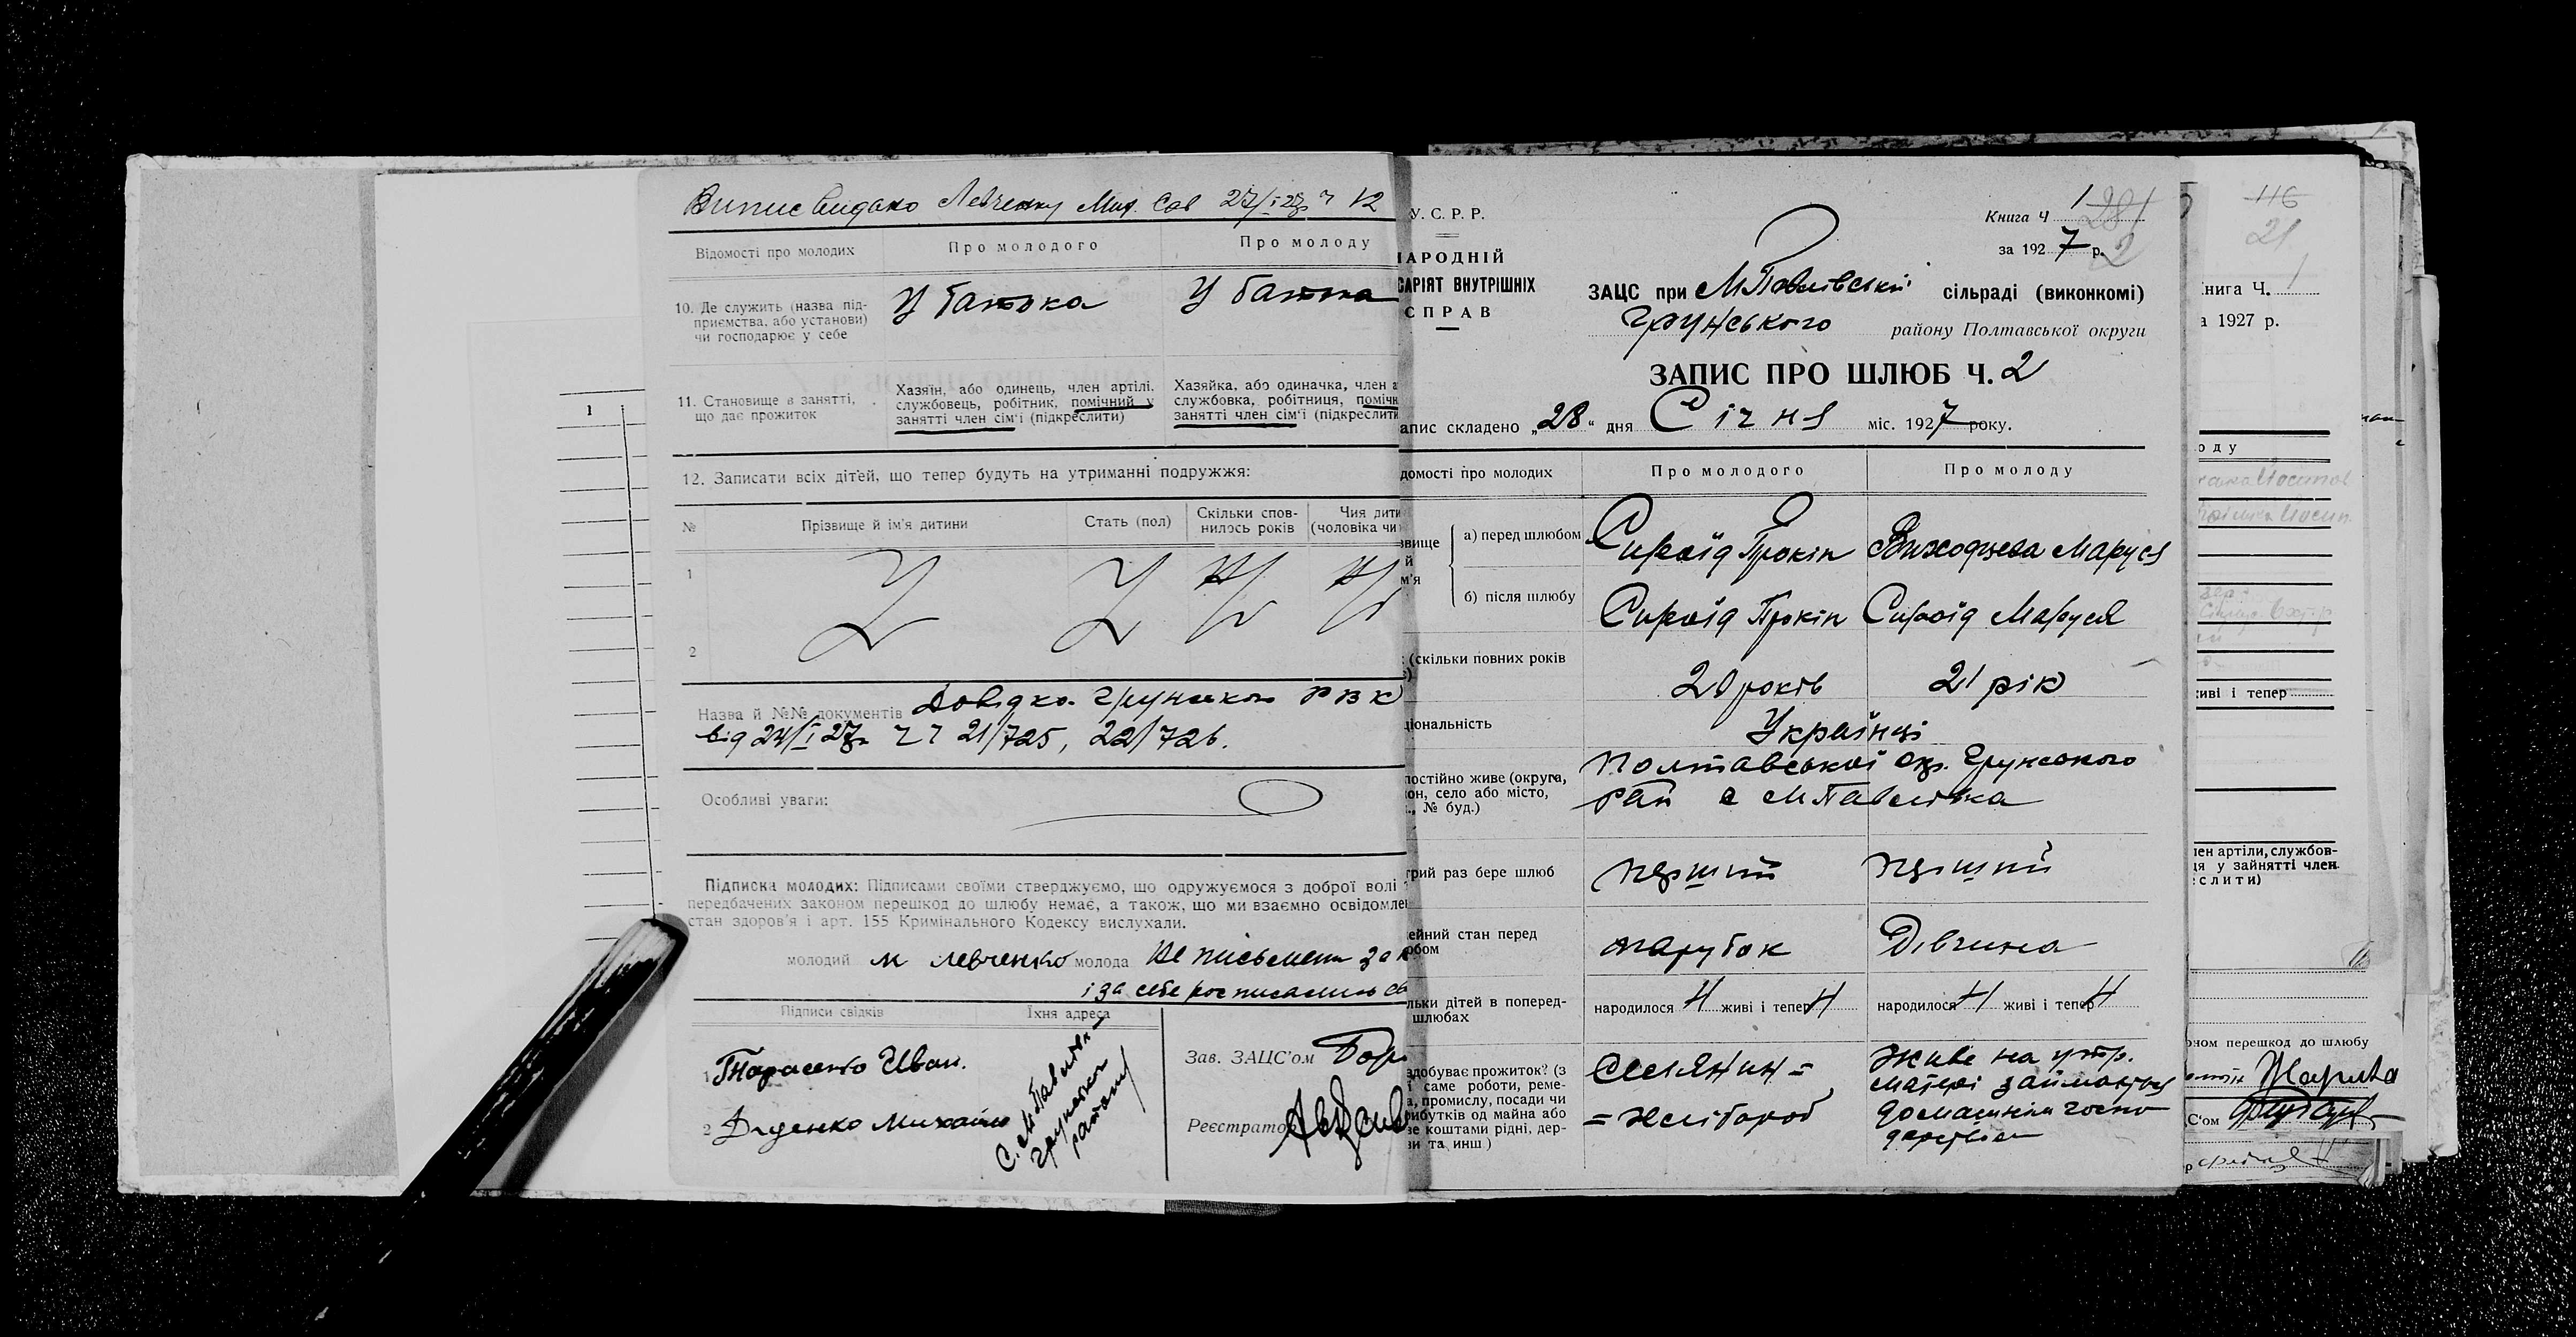 Випис видано Левченку Мих. Сав 27/I 27р ч 12
Відомості про молодих
Про молодого
Про молоду
10. Де служить (назва під-
приємства, або установи)
чи господарює у себе
У батька
У батька
11. Становище в занятті,
що дає прожиток
Хазяїн, або одинець, член артілі,
службовець, робітник, помічний у
занятті член сім'ї (підкреслити)
Хазяйка, або одиначка, член а
службовка, робітниця, помічн
занятті член сім'ї (підкреслити
12. Записати всіх дітей, що тепер будуть на утриманні подружжя:
№
Прізвище й ім'я дитини
Стать (пол)
Скільки спов-
нилось років
Чия дити
(чоловіка чи
1
2
Назва й №№ документів Довідка Грунського РВК
від 24/I 27р ч ч 21/725, 22/726.
Особливі уваги:
Підписка молодих: Підписами своїми стверджуємо, що одружуємося з доброї волі
передбачених законом перешкод до шлюбу немає, а також, що ми взаємно освідомле
стан здоров'я і арт. 155 Кримінального Кодексу вислухали.
молодий М Левченко молода Не письмени за
і за себе росписались
Підписи свідків
Їхня адреса
1 Тарасенко Иван.
2 Діденко Михайло
С. М Павлівка
Грунського
району
Зав. ЗАЦС'ом
Реєстратор
У. С. Р. Р.
НАРОДНІЙ
САРІЯТ ВНУТРІШНІХ
СПРАВ
Книга Ч 1
281
за 1927 р.
2
ЗАЦС при МПавлівській сільраді (виконкомі)
Грунського району Полтавської округи
ЗАПИС ПРО ШЛЮБ Ч. 2
апис складено „28“ дня Січня міс. 1927 року.
домості про молодих
Про молодого
Про молоду
звище
й
м'я
а) перед шлюбом
Сироїд Прокіп
Виходцева Маруся
б) після шлюбу
Сироїд Прокіп
Сироїд Маруся
(скільки повних років
20 років
21 рік
ціональність
Українці
постійно живе (округа,
он, село або місто,
№ буд.)
Полтавської окр. Грунського
рай с МПавлівка
трий раз бере шлюб
перший
перший
ейний стан перед
юбом
парубок
Дівчина
льки дітей в поперед-
шлюбах
народилося Н живі і тепер Н
народилося Н живі і тепер Н
здобуває прожиток? (з
саме роботи, реме-
а, промислу, посади чи
рибутків од майна або
ве коштами рідні, дер-
ви та инш)
Селянин =
= Хлібороб
Живе на утр.
матері займається
домашнім госпо
дарством
116
21
нига Ч. 1
а 1927 р.
оду
иві і тепер
лен артіли, службов-
ця у зайнятті член
слити)
оном перешкод до шлюбу
С'ом